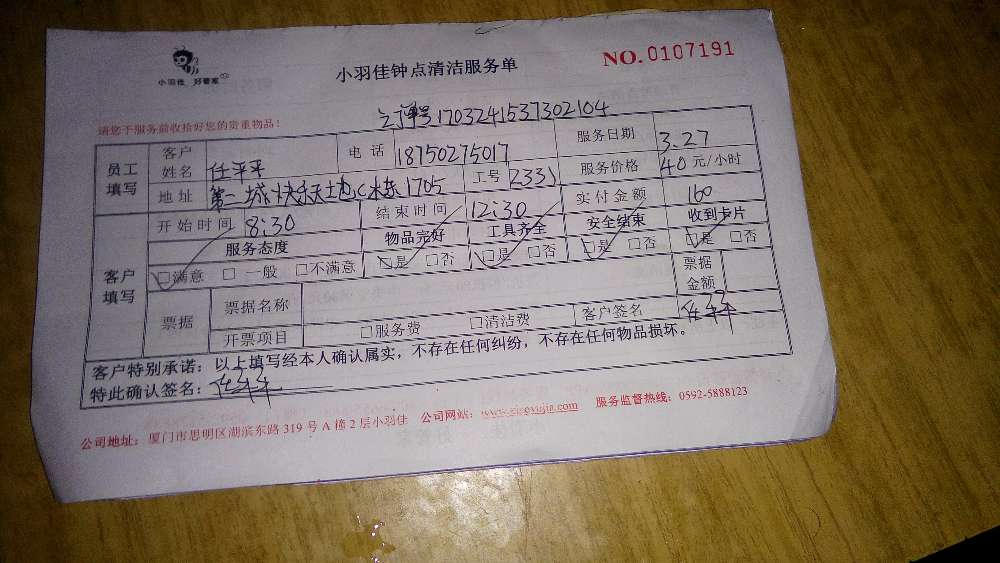 小羽佳 好管家
小羽佳钟点清洁服务单
NO. 0107191
订单号1703241537302104
请您于服务前收拾好您的贵重物品！
员工填写 客户姓名 任平平 电话 18750275017 服务日期 3.27
地址 第二城快乐天地C栋1705 工号 2331 服务价格 40元/小时
客户填写 开始时间 8:30 结束时间 12:30 实付金额 160
服务态度 物品完好 工具齐全 安全结束 收到卡片
□满意 □一般 □不满意 □是 □否 □是 □否 □是 □否 □是 □否
票据 票据名称 票据金额
开票项目 □服务费 □清洁费 客户签名 任平平
客户特别承诺：以上填写经本人确认属实，不存在任何纠纷，不存在任何物品损坏。
特此确认签名：任平平
公司地址：厦门市思明区湖滨东路319号A幢2层小羽佳 公司网站：www.xiaoyujia.com 服务监督热线：0592-5888123